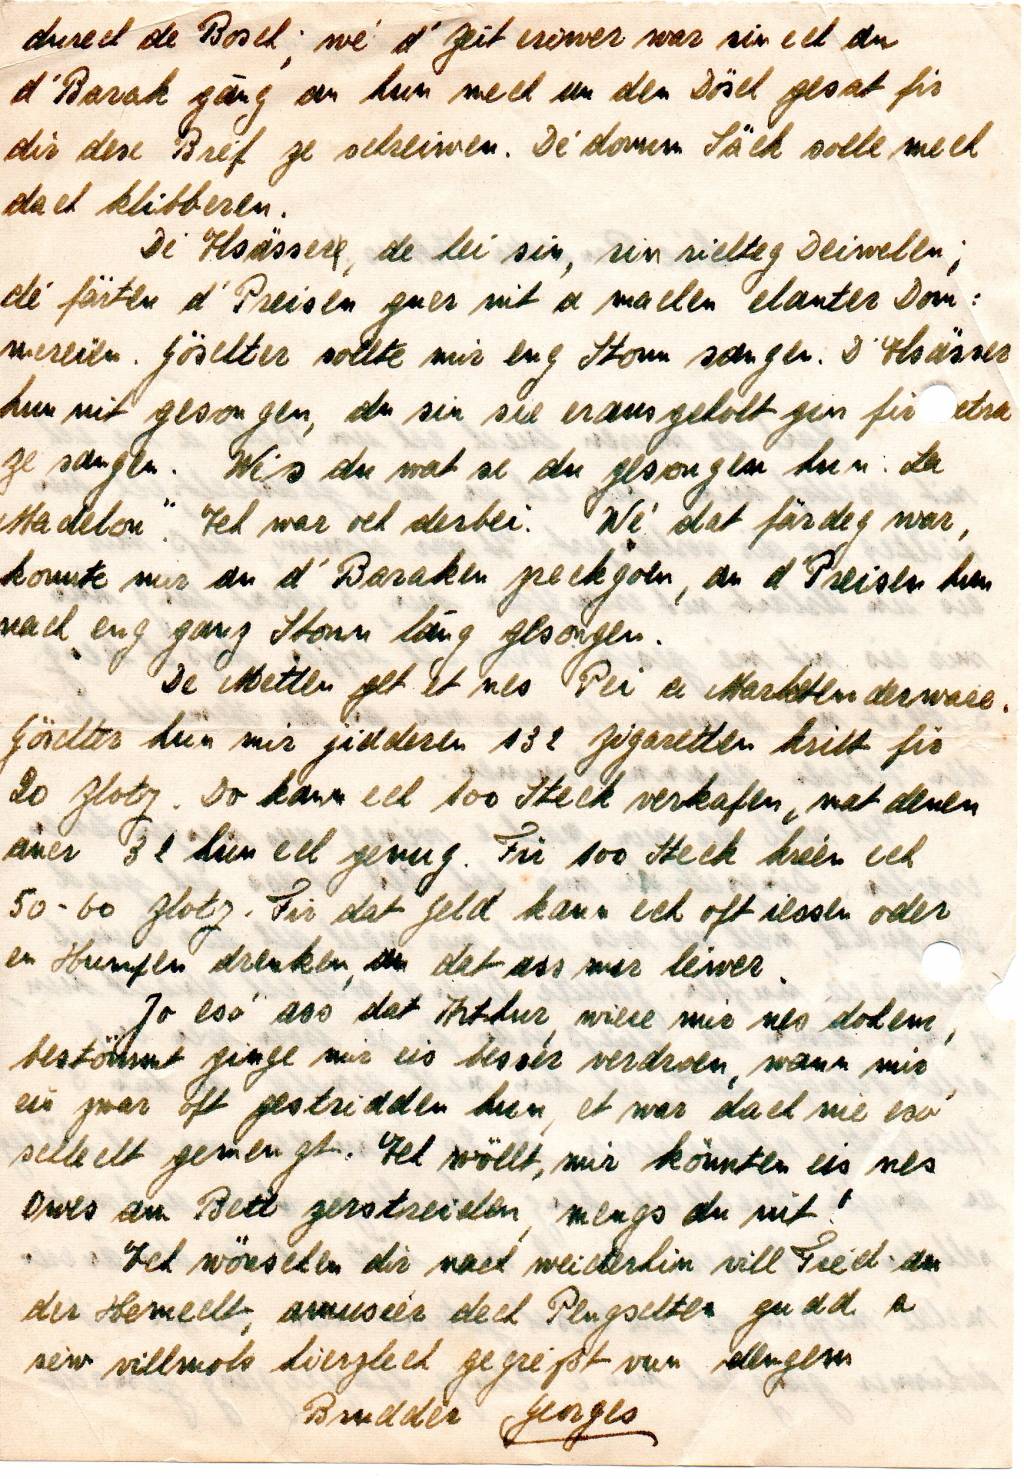 durech de Bosch; wé d'Zeit eriwer war sin ech an
d'Barak gáng an hun mech un den Dösch gesat fir
dir dese Bréf ze schreiwen. Dé domm Säck solle mech
dach klibberen.
Di Elsässer, de hei sin, sin richteg Deiwelen;
dé färten d'Preisen guer nit a machen elauter Dom=
mereien. Göschter sollte mir eng Stonn sangen. D'Elsässer
hun nit gesongen, du sin sie erausgeholt gin fir extra
ze sangen. Wés du wat se du gesongen hun: „La
Madelon". Ech war och derbei. Wé dat färdeg war,
konnte mir an d'Baraken zreckgoen, an d'Preisen hun
nach eng ganz Stonn láng gesongen.
De Metten get et nes Pei a Marketenderware.
Göschter hun mir jidderen 132 Zigaretten krit fir
20 Zloty. Do kann ech 100 Steck verkafen, mat denen
aner 32 hun ech genug. Fir 100 Steck kréien ech
50-60 Zloty. Fir dat Geld kann ech oft iessen oder
en Humpen drenken, an dat ass mir léiwer.
Jo esó ass dat Arthur, wiere mir nes dohém,
bestömmt ginge mir eis besser verdroen, wann mir
eis zwar oft gestridden hun, et war dach nie esó
schlecht gemengt. Ech wöllt, mir könnten eis nes
Owes am Bett zerstreiden, mengs du nit!
Ech wönschen dir nach weiderhin vill Fréd an
der Heemecht, amuséier dech Pengschten gudd a
seiw villmols hierzlech gegréißt vun dengem
Brudder Georges